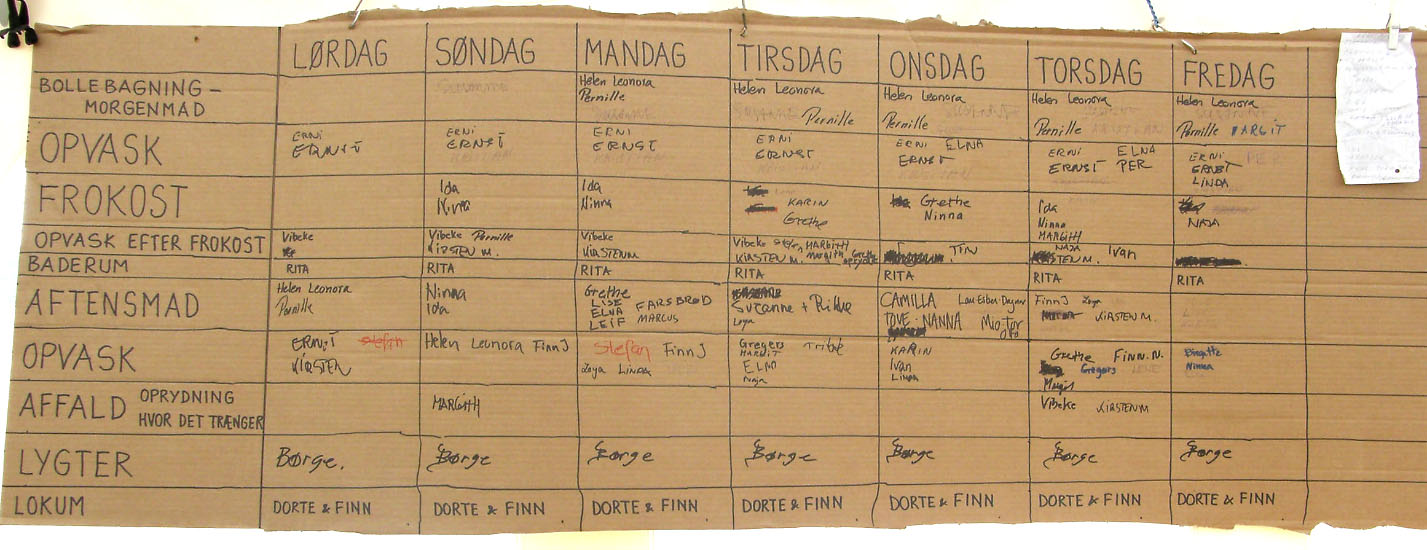 LØRDAG SØNDAG MANDAG TIRSDAG ONSDAG TORSDAG FREDAG
BOLLEBAGNING –
MORGENMAD
Helen Leonora
Pernille
Helen Leonora
Pernille
Helen Leonora
Pernille
Helen Leonora
Pernille
Helen Leonora
Pernille MARGIT
OPVASK
ERNI
ERNST
ERNI
ERNST
ERNI
ERNST
ERNI
ERNST
ERNI ELNA
ERNST
ERNI ELNA
ERNST PER
ERNI PER
ERNST
LINDA
FROKOST
Ida
Ninna
Ida
Ninna
KARIN
Grethe
Grethe
Ninna
Ida
Ninna
MARGITH
NAJA
OPVASK EFTER FROKOST
Vibeke
Vibeke Pernille
KIRSTEN M.
Vibeke
KIRSTEN M
Vibeke MARGITH
KIRSTEN M. Margith Grethe
NAJA Ivan
KIRSTEN M.
BADERUM
RITA
RITA
RITA
RITA
RITA
RITA
RITA
AFTENSMAD
Helen Leonora
Pernille
Ninna
Ida
Grethe
LISE FARSBROD
ELNA MARCUS
LEIF
Suzanne + Rikke
Loya
CAMILLA
TOVE · NANNA
Finn J Loya
KIRSTEN M.
OPVASK
ERNST Stefan
KIRSTEN
Helen Leonora Finn J
Stefan Finn J
Loya LINDA
Gregers
MARGIT
ELNA
Naja
KARIN
Ivan
Linda
Grethe FINN.N.
Gregers LENE
Birgitte
Ninna
AFFALD OPRYDNING
HVOR DET TRÆNGER
MARGITH
Vibeke KIRSTEN M
LYGTER
Børge.
Børge
Børge
Børge
Børge
Børge
Børge
LOKUM
DORTE & FINN
DORTE & FINN
DORTE & FINN
DORTE & FINN
DORTE & FINN
DORTE & FINN
DORTE & FINN